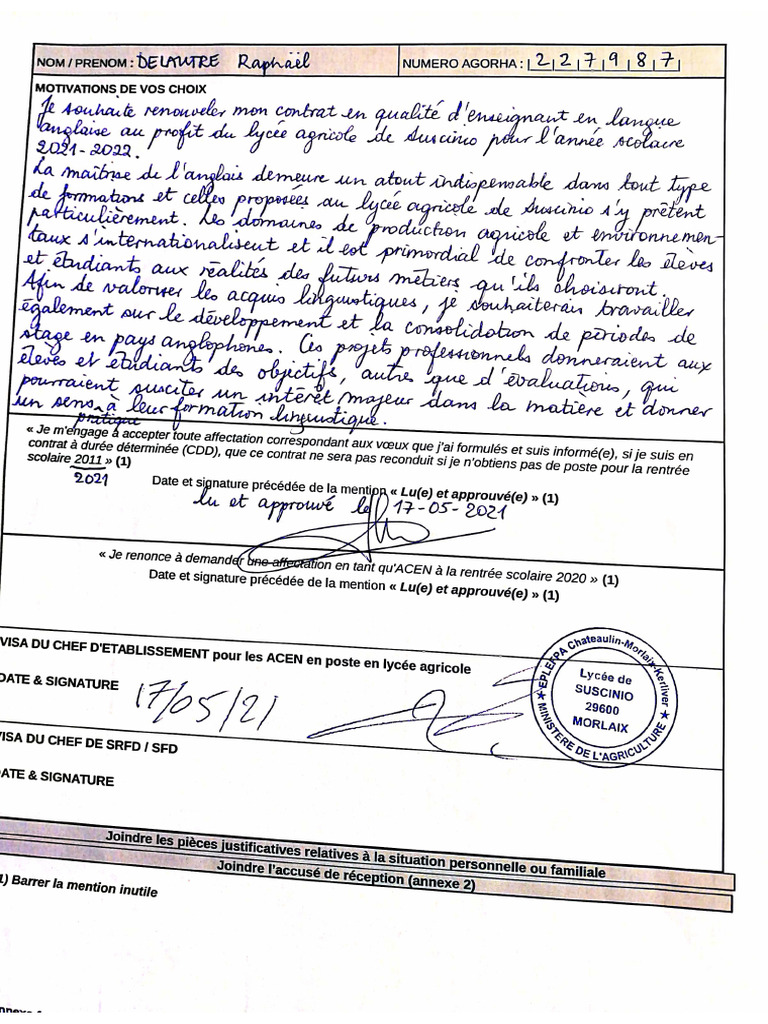 NOM / PRENOM : DELAUTRE Raphaël NUMERO AGORHA : |2|2|7|9|8|7|
MOTIVATIONS DE VOS CHOIX
Je souhaite renouveler mon contrat en qualité d'enseignant en langue
anglaise au profit du lycée agricole de Suscinio pour l'année scolaire
2021-2022.
La maîtrise de l'anglais demeure un atout indispensable dans tout type
de formations et celles proposées au lycée agricole de Suscinio s'y prêtent
particulièrement. Les domaines de production agricole et environnemen-
taux s'internationalisent et il est primordial de confronter les élèves
et étudiants aux réalités des futurs métiers qu'ils choisiront.
Afin de valoriser les acquis linguistiques, je souhaiterais travailler
également sur le développement et la consolidation de périodes de
stage en pays anglophones. Ces projets professionnels donneraient aux
élèves et étudiants des objectifs, autres que d'évaluations, qui
pourraient susciter un intérêt majeur dans la matière et donner
un sens à leur formation linguistique.
pratique
« Je m'engage à accepter toute affectation correspondant aux vœux que j'ai formulés et suis informé(e), si je suis en
contrat à durée déterminée (CDD), que ce contrat ne sera pas reconduit si je n'obtiens pas de poste pour la rentrée
scolaire 2011 » (1)
2021
Date et signature précédée de la mention « Lu(e) et approuvé(e) » (1)
lu et approuvé le 17-05-2021
« Je renonce à demander une affectation en tant qu'ACEN à la rentrée scolaire 2020 » (1)
Date et signature précédée de la mention « Lu(e) et approuvé(e) » (1)
VISA DU CHEF D'ETABLISSEMENT pour les ACEN en poste en lycée agricole
DATE & SIGNATURE 17/05/21
EPLEFPA Chateaulin-Morlaix-Kerliver
Lycée de
SUSCINIO
29600
MORLAIX
MINISTERE DE L'AGRICULTURE
VISA DU CHEF DE SRFD / SFD
DATE & SIGNATURE
Joindre les pièces justificatives relatives à la situation personnelle ou familiale
Joindre l'accusé de réception (annexe 2)
1) Barrer la mention inutile